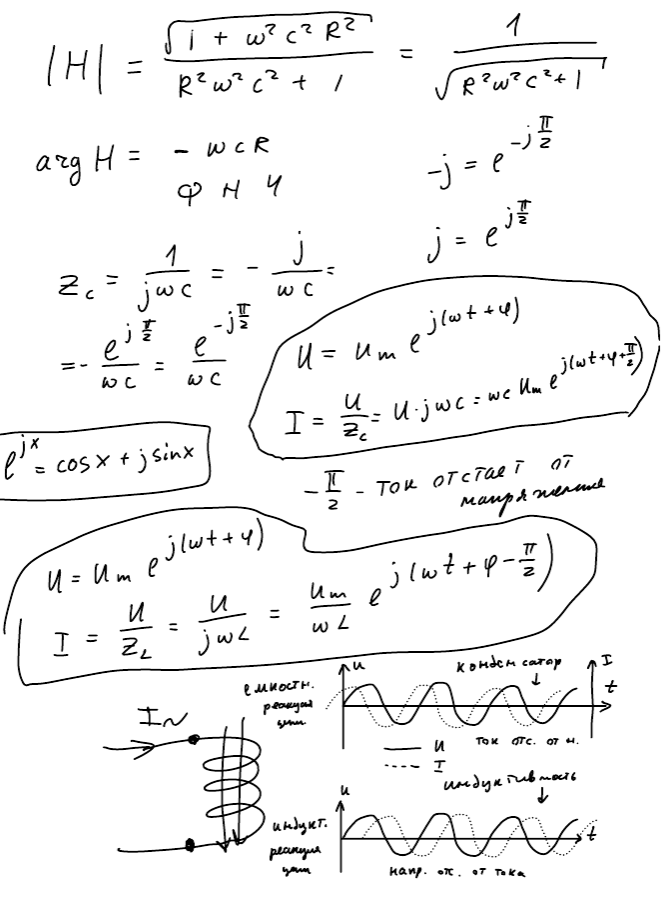 |H| = √(1 + ω²C²R²) / (R²ω²C² + 1) = 1 / √(R²ω²C²+1)
arg H = - ωCR
ФНЧ
-j = e^(-jπ/2)
j = e^(jπ/2)
Z_c = 1/(jωC) = - j/(ωC) =
= - e^(jπ/2)/(ωC) = e^(-jπ/2)/(ωC)
U = U_m e^(j(ωt+φ))
I = U/Z_c = U·jωC = ωC U_m e^(j(ωt+φ+π/2))
e^(jx) = cosx + j sinx
-π/2 - ток отстает от
напряжения
U = U_m e^(j(ωt+φ))
I = U/Z_L = U/(jωL) = U_m/(ωL) e^(j(ωt+φ-π/2))
I~
емкостн.
реакция
цепи
U
конденсатор
I
t
— U
ток отс. от н.
---- I
индуктивность
U
индукт.
реакция
цепи
t
напр. от. от тока